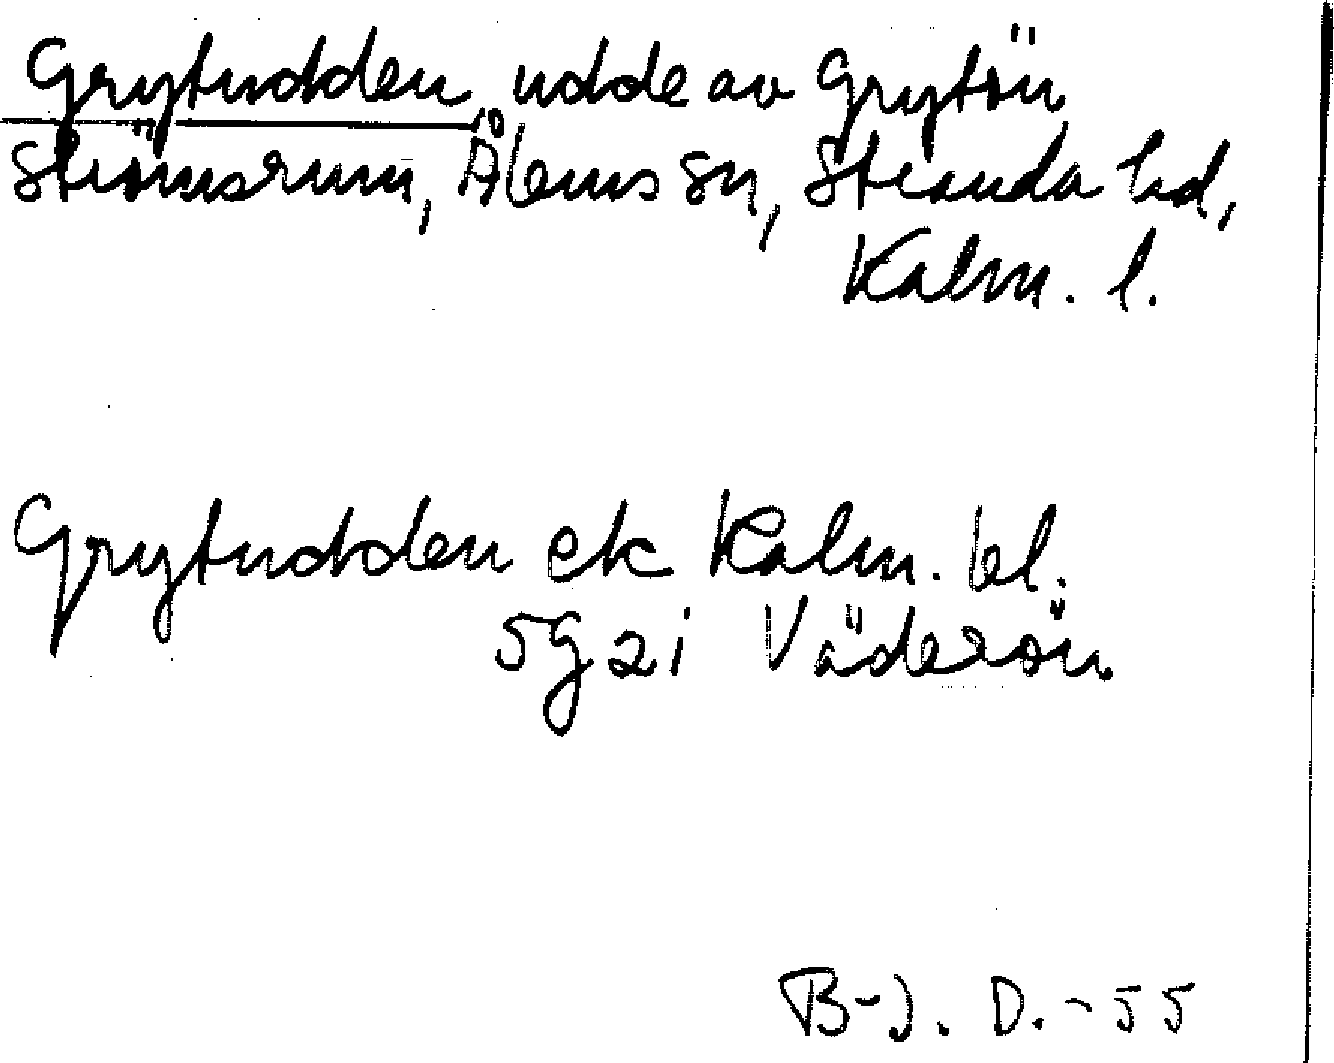 Grytudden, udde av Grytön
Strömsrum, Ålems sn, Stranda hd,
Kalm. l.
Grytudden ek Kalm. bl.
5g 2i Väderön.
B-J. D. -55